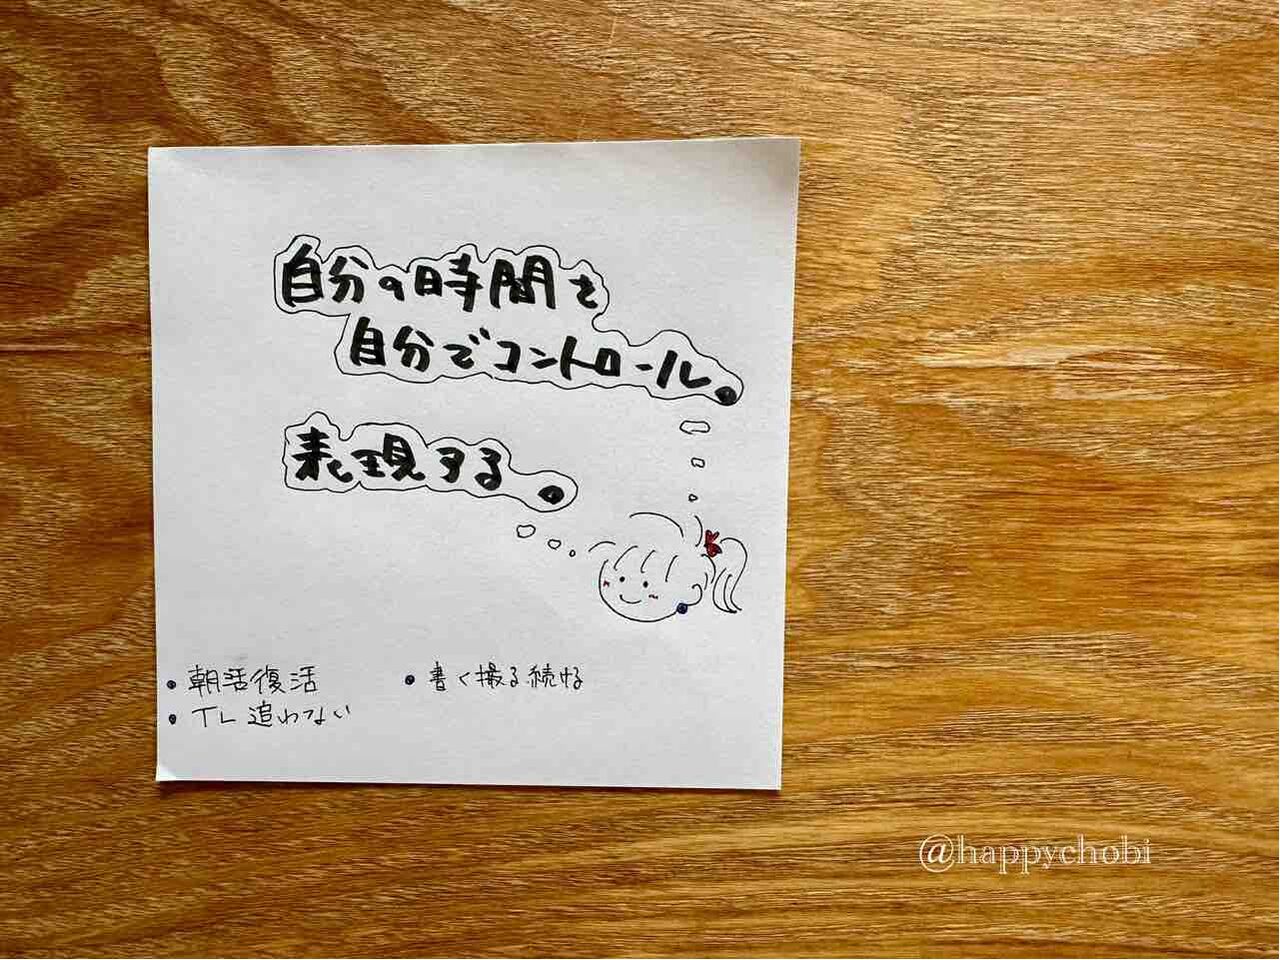 自分の時間を
自分でコントロール。
表現する。
• 朝活復活
• TL追わない
• 書く撮る続ける
@happychobi